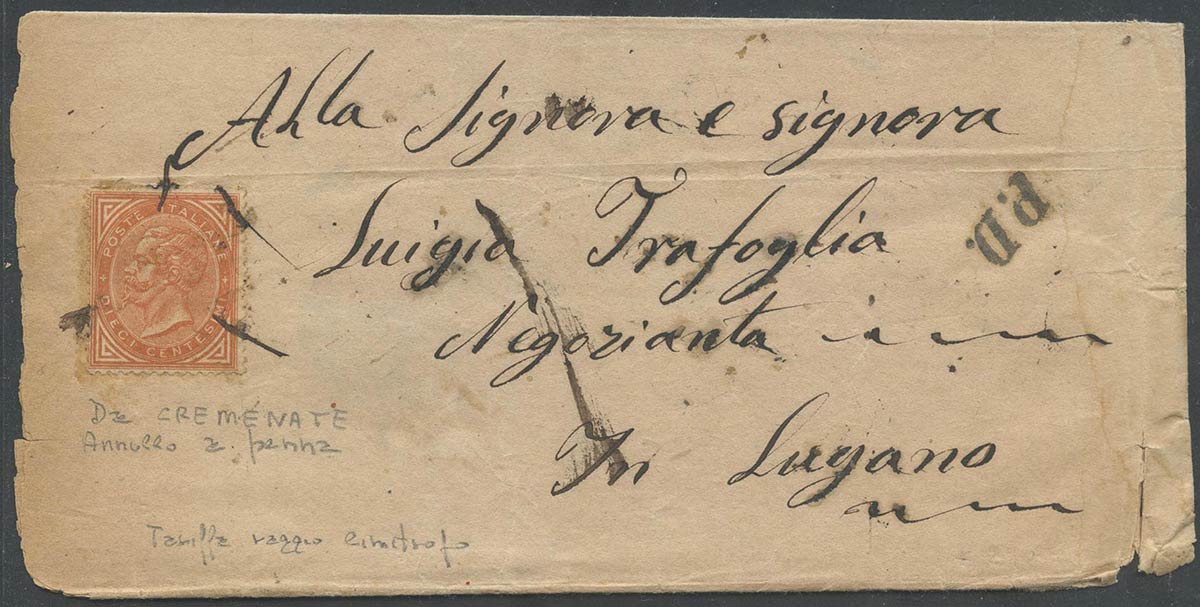 Alla Signora e signora
Luigia Trafoglia
Negozianta
In Lugano
P.D.
POSTE ITALIANE
DIECI CENTESIMI
Da CREMÉNATE
Annullo a penna
Tariffa raggio limitrofo